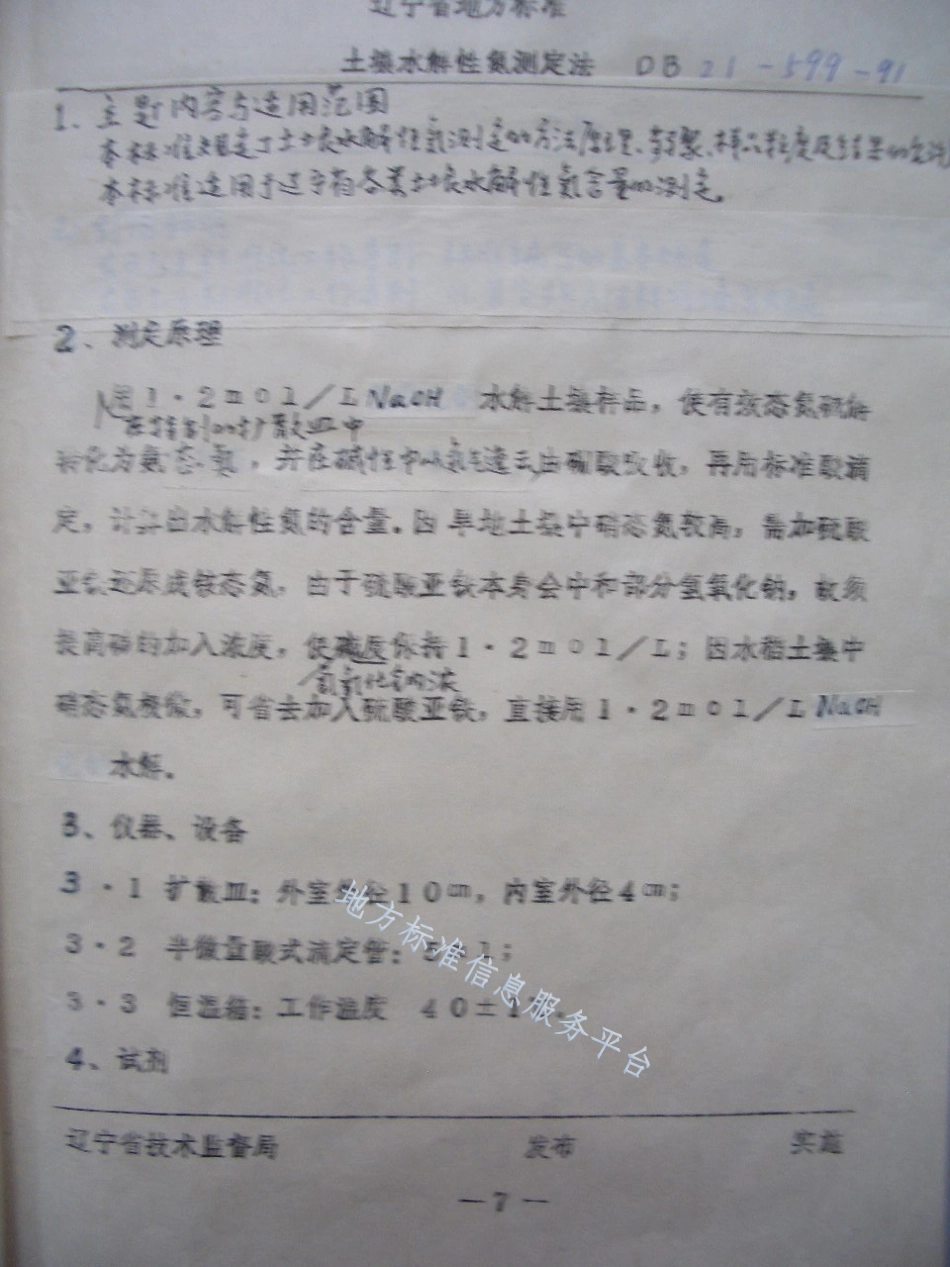 辽宁省地方标准
土壤水解性氮测定法 DB 21-599-91
1. 主题内容与适用范围
本标准规定了土壤水解性氮测定的方法原理、步骤、样品粒度及结果的允许
本标准适用于辽宁省各类土壤水解性氮含量的测定。
2、测定原理
用1·2mol/L NaOH 水解土壤样品,使有效态氮碱解
在特制的扩散皿中
转化为氨态氮,并在碱性中以氨气逸云由硼酸吸收,再用标准酸滴
定,计算出水解性氮的含量。因旱地土壤中硝态氮较高,需加硫酸
亚铁还原成铵态氮,由于硫酸亚铁本身会中和部分氢氧化钠,故须
提高碱的加入浓度,使碱度保持1·2mol/L;因水稻土壤中
氢氧化钠浓
硝态氮极微,可省去加入硫酸亚铁,直接用1·2mol/L NaOH
水解。
3、仪器、设备
3·1 扩散皿:外室外径10cm,内室外径4cm;
3·2 半微量酸式滴定管:
3·3 恒温箱:工作温度 40±1
4、试剂
辽宁省技术监督局 发布 实施
—7—
地方标准信息服务平台